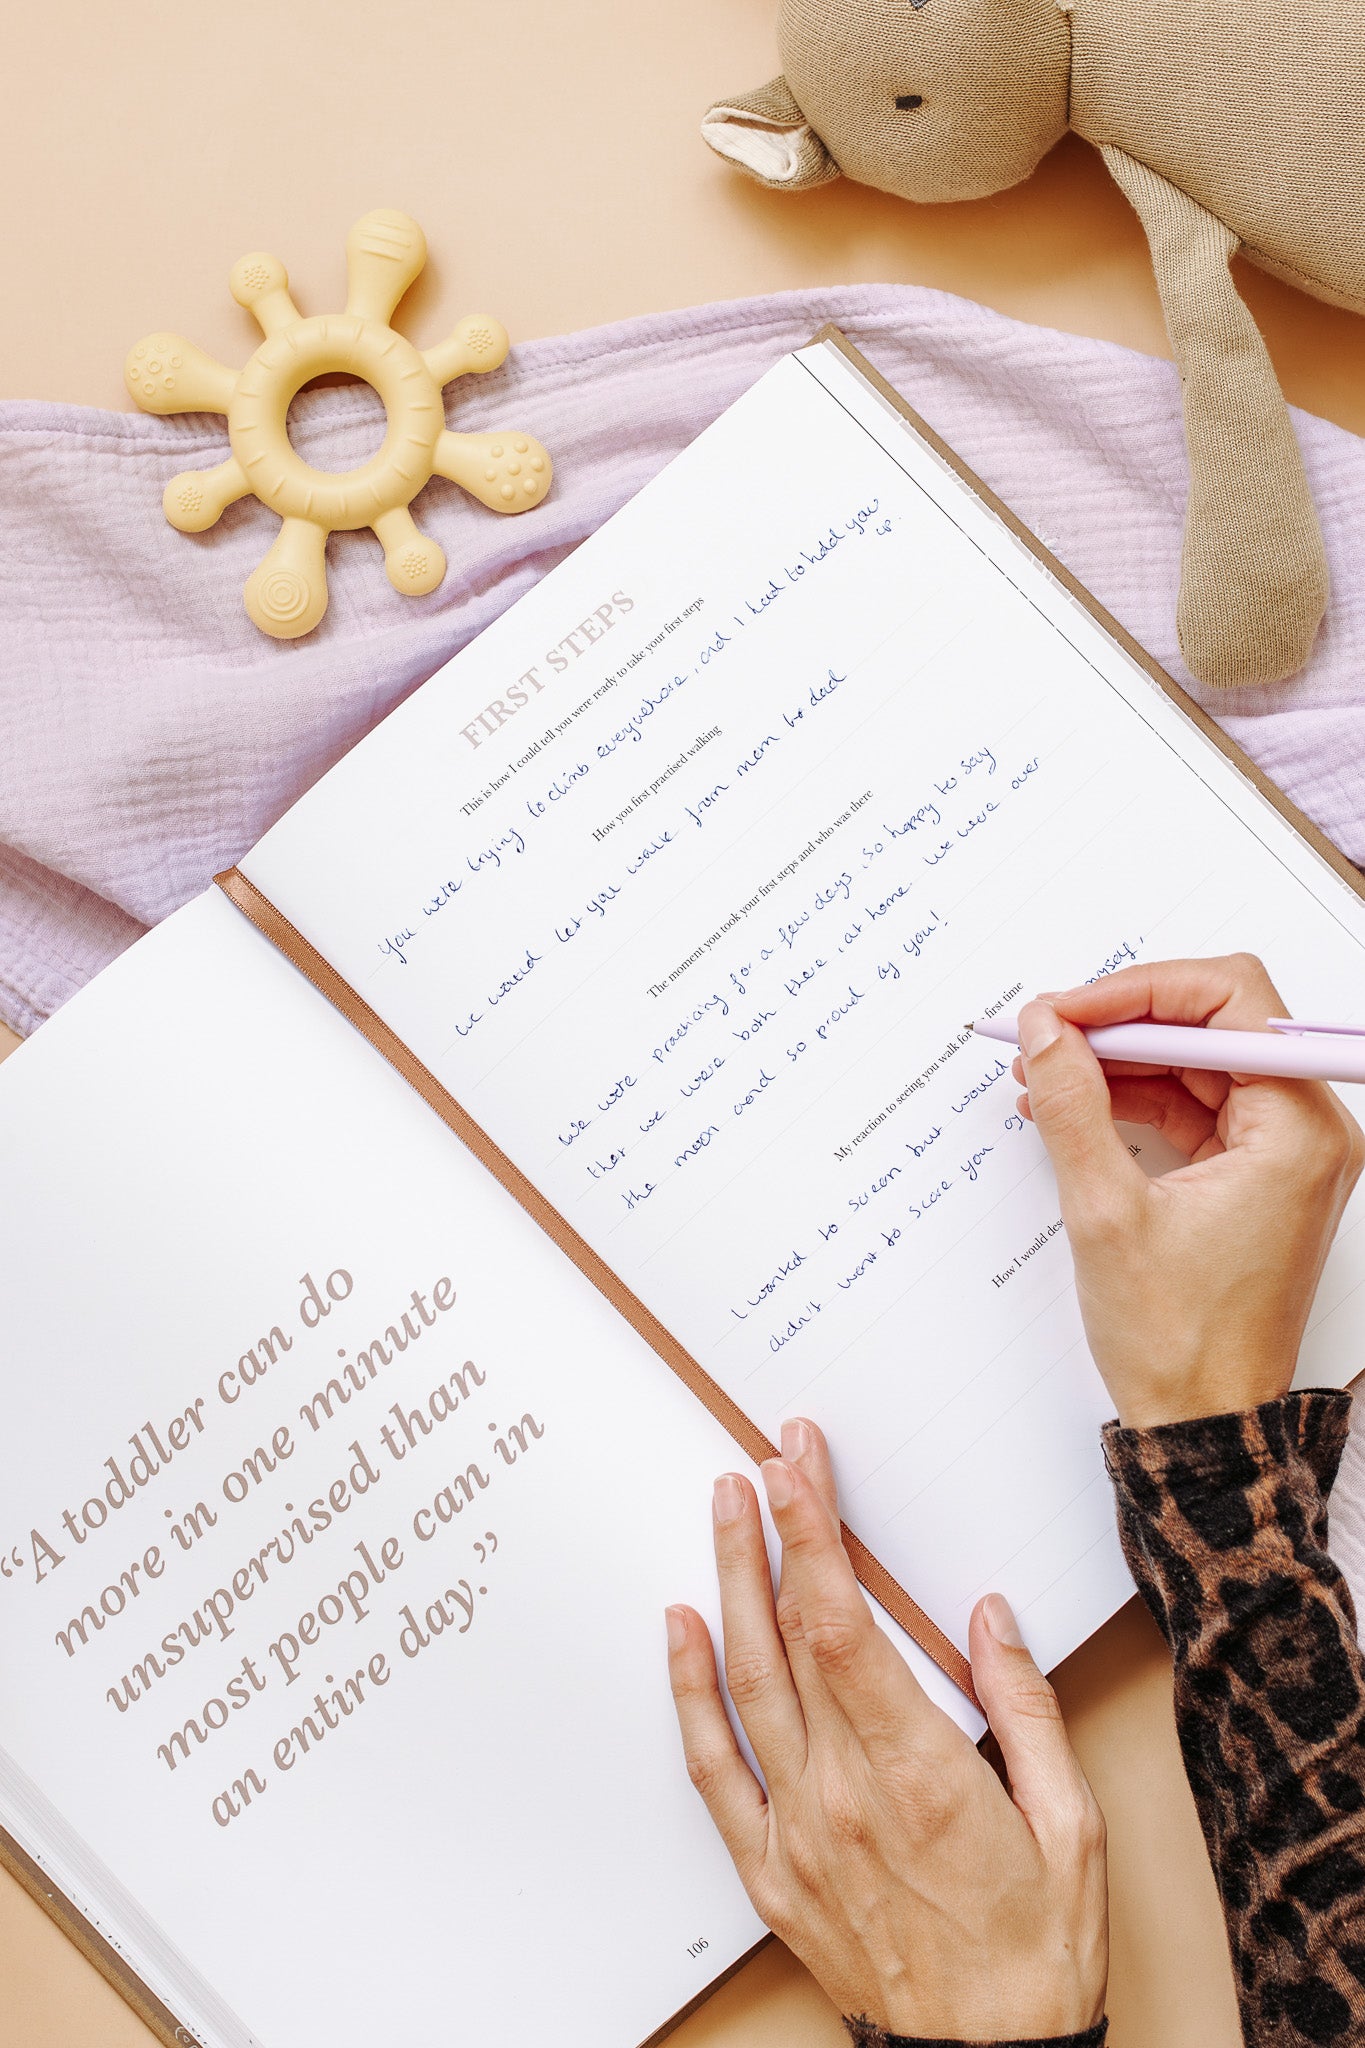 “A toddler can do
more in one minute
unsupervised than
most people can in
an entire day.”
106
FIRST STEPS
This is how I could tell you were ready to take your first steps
You were trying to climb everywhere, and I had to hold you
up.
How you first practised walking
We would let you walk from mom to dad
The moment you took your first steps and who was there
We were practicing for a few days, so happy to say
that we were both there, at home. We were over
the moon and so proud of you!
My reaction to seeing you walk for first time
I wanted to scream but would myself,
didn't want to scare you
How I would